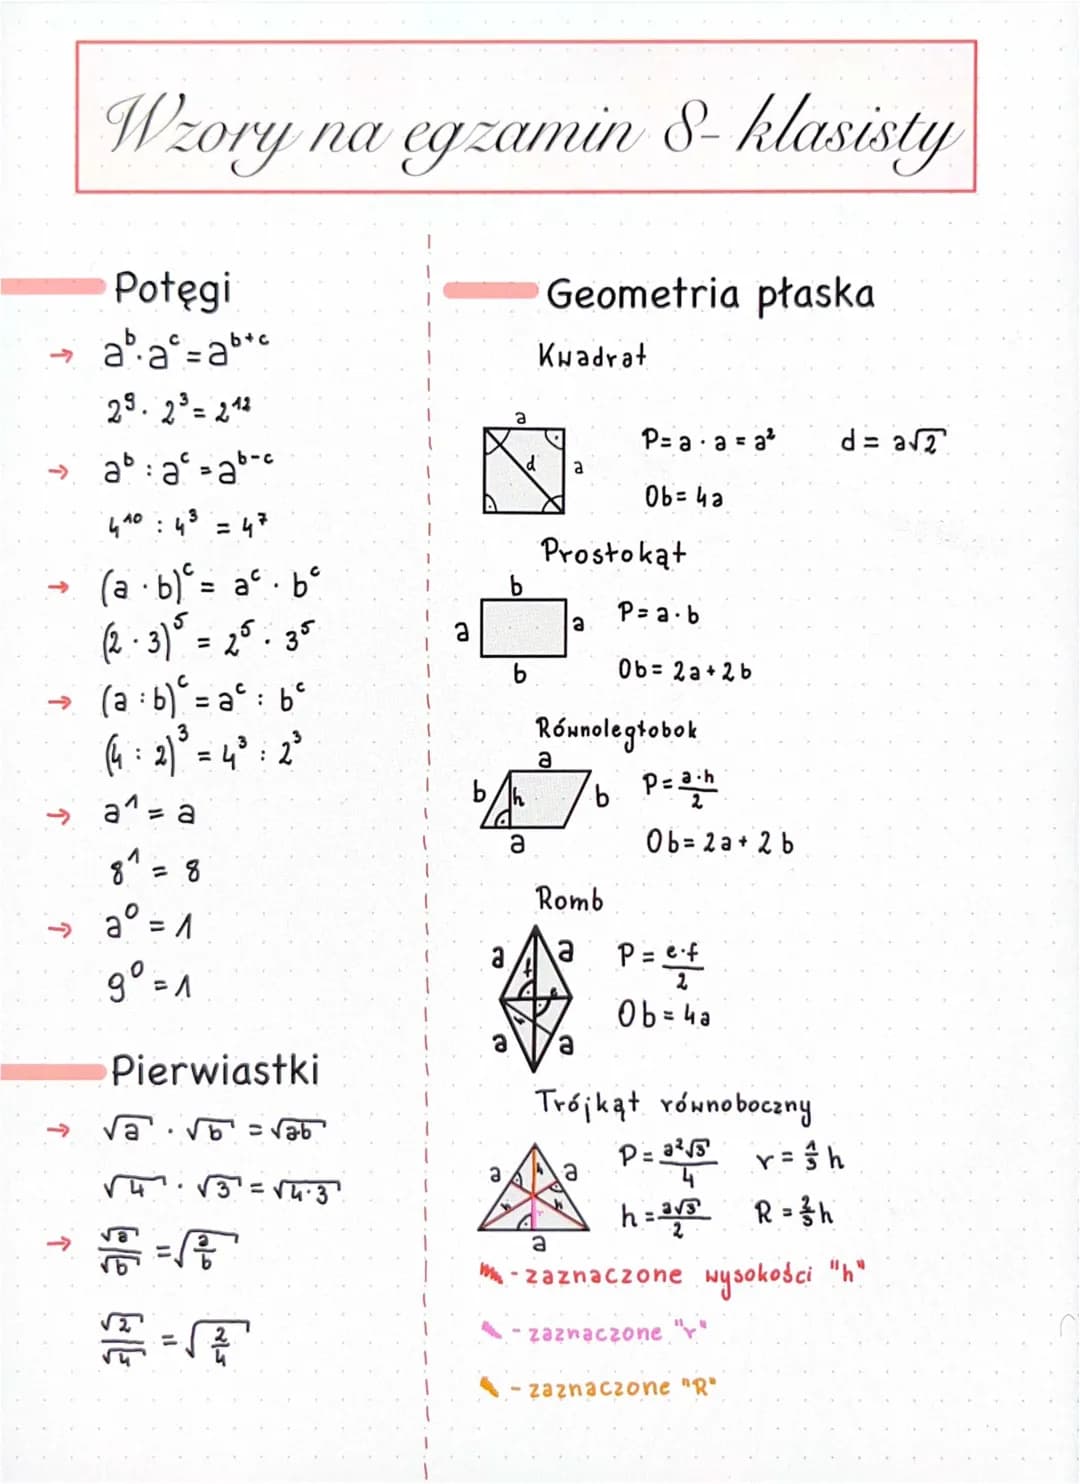 Wzory na egzamin 8-klasisty
Potęgi
→ a^b · a^c = a^(b+c)
2^9 · 2^3 = 2^12
→ a^b : a^c = a^(b-c)
4^10 : 4^3 = 4^7
→ (a · b)^c = a^c · b^c
(2 · 3)^5 = 2^5 · 3^5
→ (a : b)^c = a^c : b^c
(4 : 2)^3 = 4^3 : 2^3
→ a^1 = a
8^1 = 8
→ a^0 = 1
9^0 = 1
Pierwiastki
→ √a · √b = √ab
√4 · √3 = √4·3
→ √a/√b = √(a/b)
√2/√4 = √(2/4)
Geometria płaska
Kwadrat
a
d
a
P = a · a = a² d = a√2
Ob = 4a
Prostokąt
b
a
a
b
P = a · b
Ob = 2a + 2b
Równoległobok
a
b
h
b
a
P = a·h/2
Ob = 2a + 2b
Romb
a
a
f
e
h
a
a
P = e·f/2
Ob = 4a
Trójkąt równoboczny
a
h
a
h
r
h
a
P = a²√3/4 r = 1/3 h
h = a√3/2 R = 2/3 h
- zaznaczone wysokości "h"
- zaznaczone "r"
- zaznaczone "R"